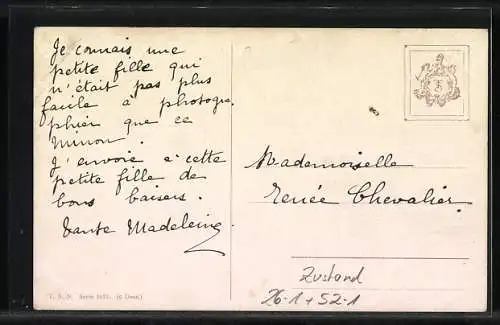 Je connais une
petite fille qui
n'était pas plus
facile à photogra
phier que ce
minon.
J'envoie à cette
petite fille de
bons baisers.
Tante Madeleine
Mademoiselle
Renée Chevalier.
Zustand
26-1 + 52-1
T. S. N. Serie